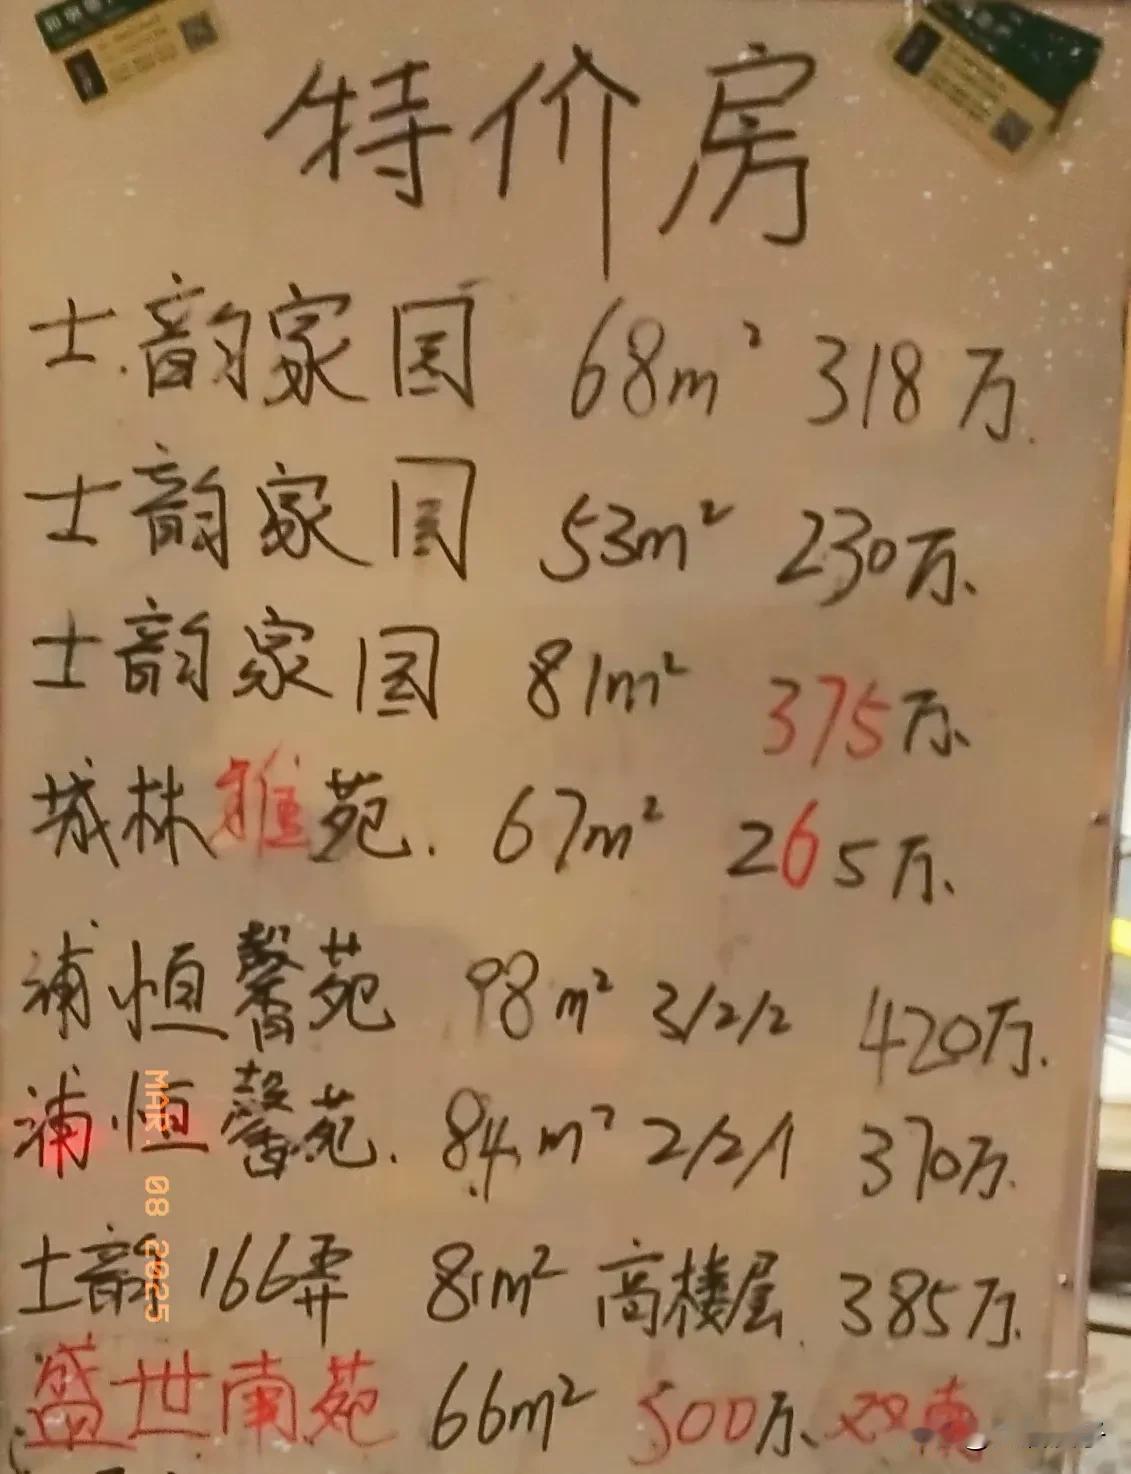 特价房
士韵家园 68m² 318万
士韵家园 53m² 230万
士韵家园 81m² 375万
城林雅苑 67m² 265万
浦恒馨苑 98m² 3/2/2 420万
浦恒馨苑 84m² 2/2/1 370万
士韵 166弄 81m² 高楼层 385万
盛世南苑 66m² 500万 双南
MAR. 08 2025